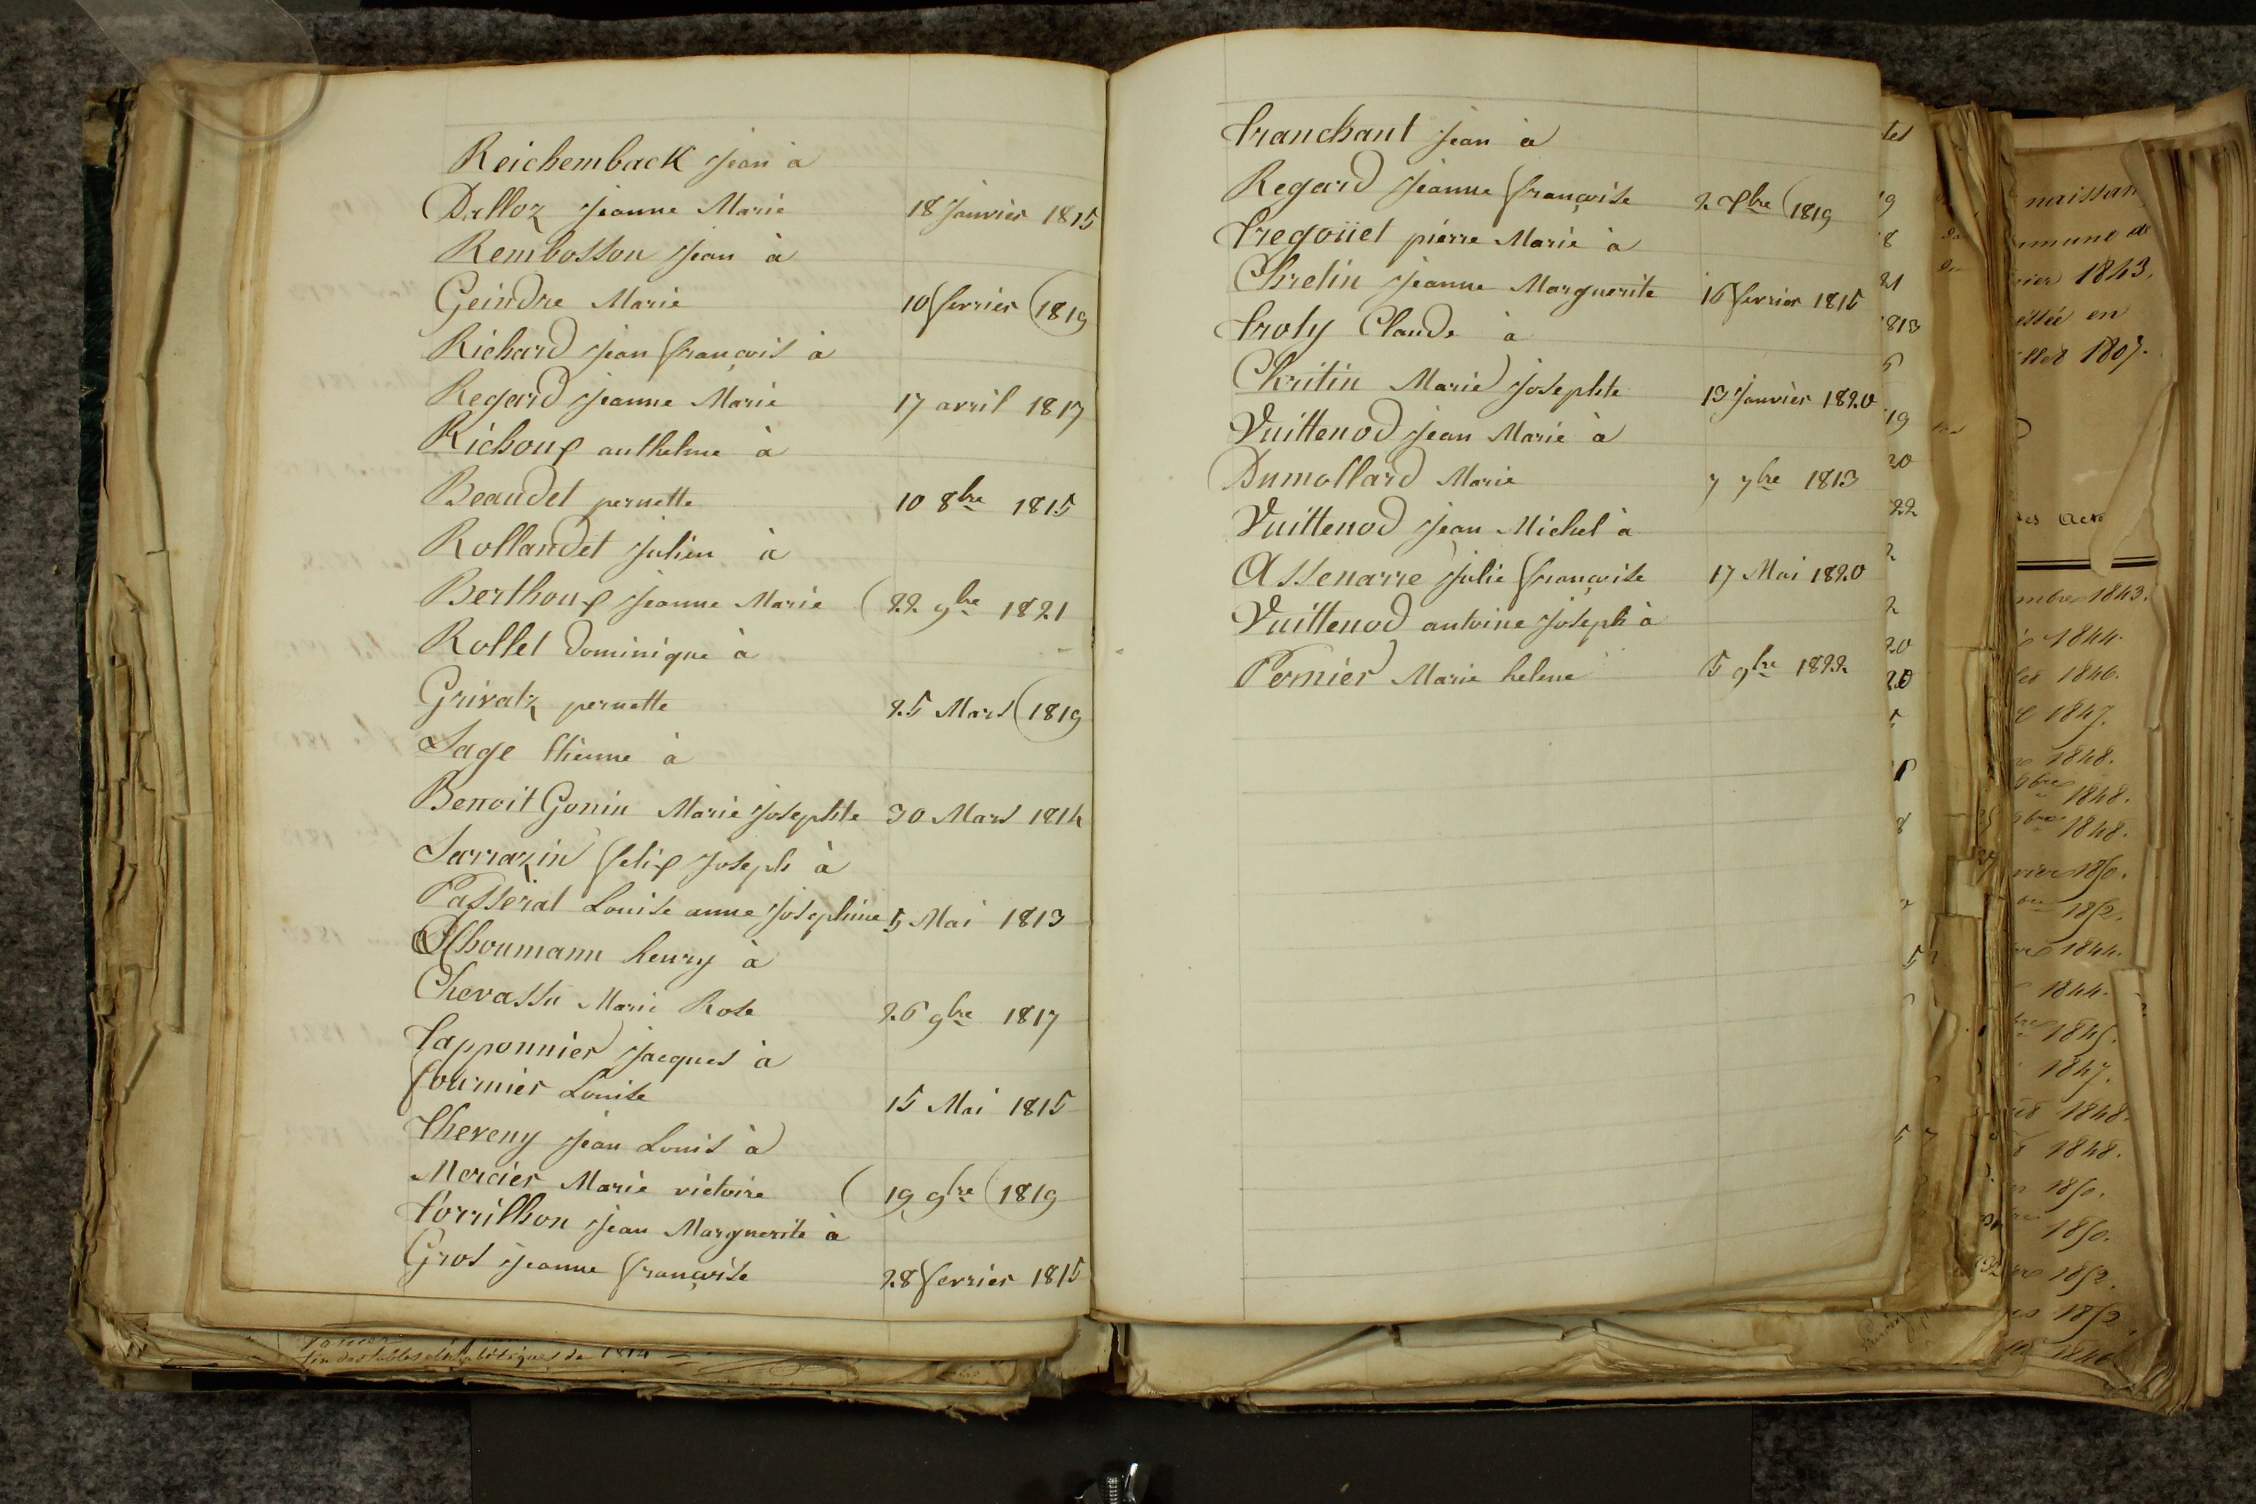 Reichemback Jean à
Dalloz Jeanne Marie 18 Janvier 1815
Rembosson Jean à
Geindre Marie 10 fevrier 1819
Richard Jean françois à
Regard Jeanne Marie 17 avril 1817
Richoux anthelme à
Beaudet pernette 10 8bre 1815
Rollandet Julien à
Berthoux Jeanne Marie 22 9bre 1821
Rollet Dominique à
Grivatz pernette 25 Mars 1819
Sage Etienne à
Benoit Gonin Marie Josephte 30 Mars 1814
Sarrazin felix Joseph à
Passerat Louise anne Josephine 5 Mai 1813
Schoumann henry à
Chevassu Marie Rose 26 9bre 1817
Tapponnier Jacques à
fournier Louise 15 Mai 1815
Theveny Jean Louis à
Mercier Marie victoire 19 9bre 1819
Torrilhon Jean Marguerite à
Gros Jeanne françoise 28 fevrier 1815
fin des tables alphabétiques de 1814
Tranchant Jean à
Regard Jeanne françoise 2 8bre 1819
Tregoüet pierre Marie à
Chretin Jeanne Marguerite 16 fevrier 1815
Troly Claude à
Chritin Marie Josephte 13 Janvier 1820
Vuittenod Jean Marie à
Dumollard Marie 7 7bre 1813
Vuittenod Jean Michel à
Assenarre Julie françoise 17 Mai 1820
Vuittenod antoine Joseph à
Pernier Marie helene 5 9bre 1822
naissan
1843.
en
1807.
1843.
1844.
1846.
1847.
1848.
1848.
1848.
1850.
1852.
1844.
1844.
1845.
1847.
1848.
1848.
1850.
1850.
1852.
1852.